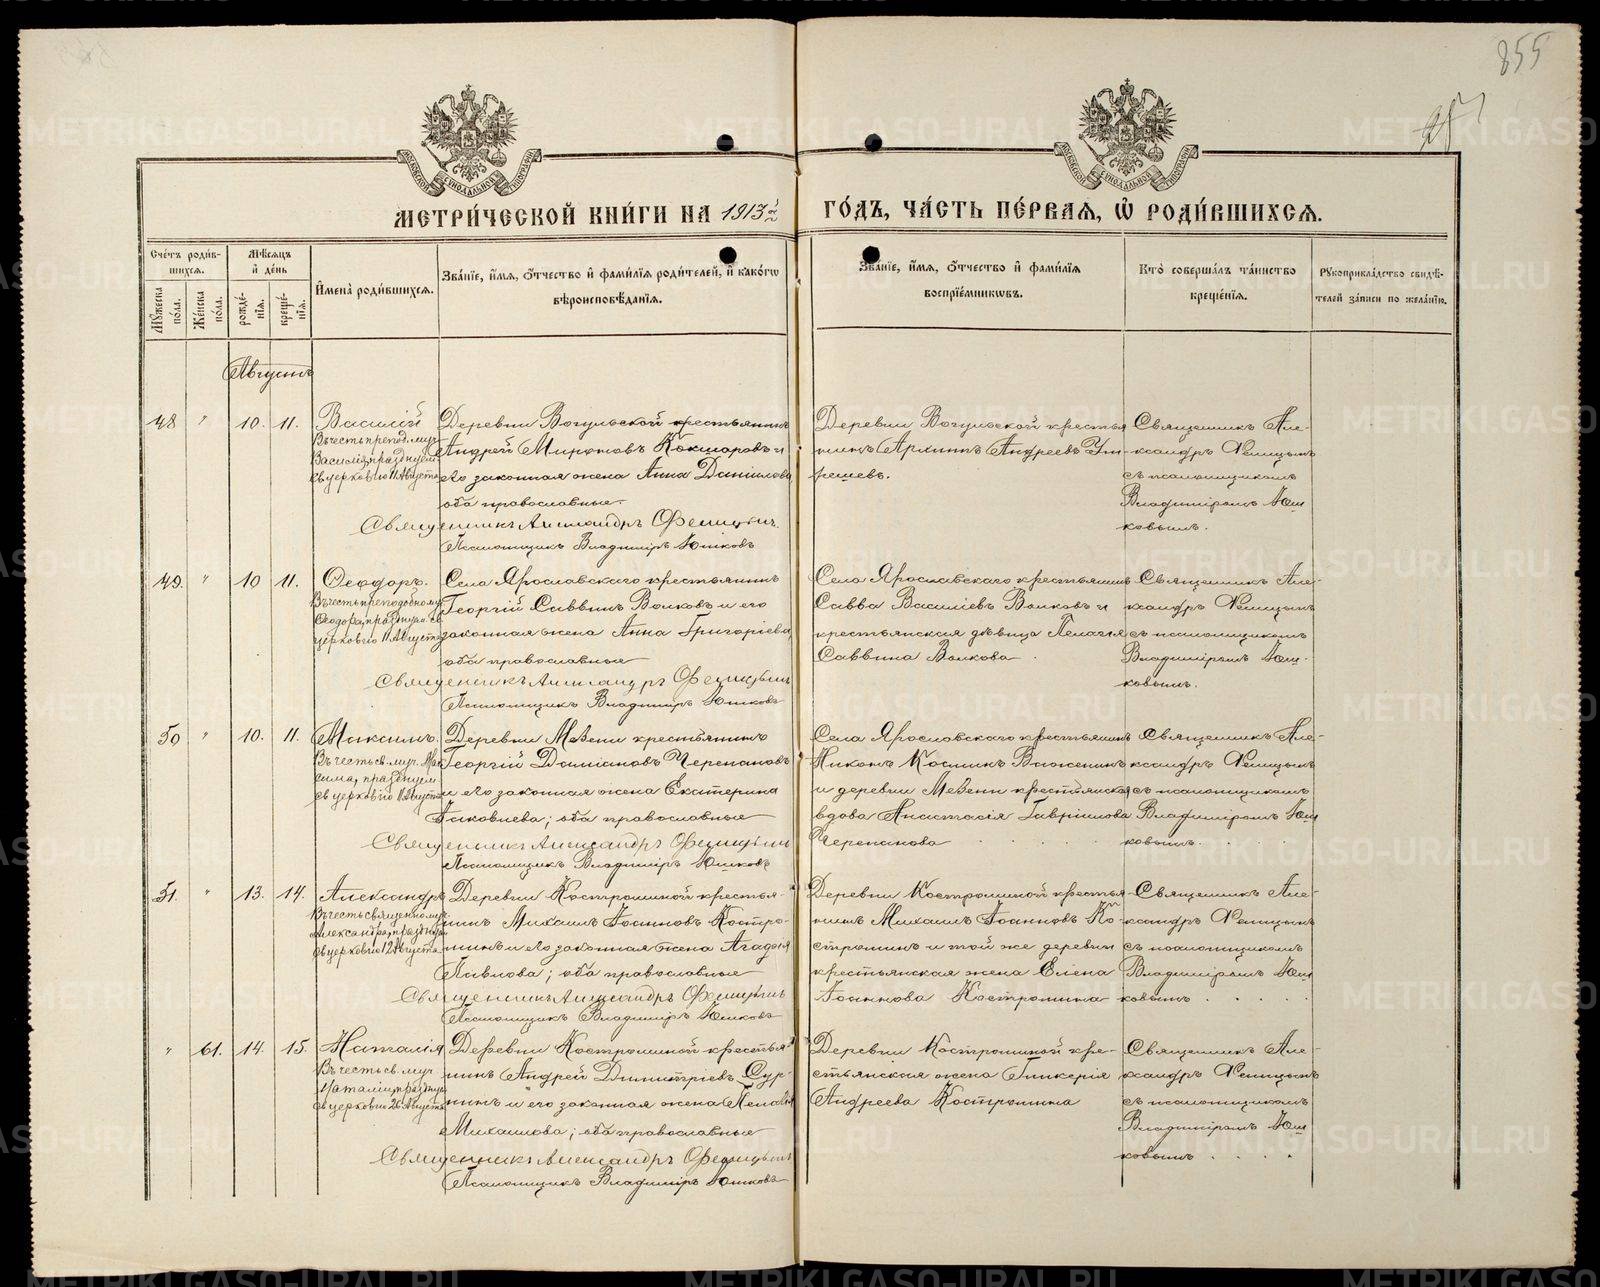 855
МЕТРИ́ЧЕСКОЙ КНИ́ГИ НА 1913 ГО́ДЪ, ЧА́СТЬ ПЕ́РВАЯ, Ѡ҆ РОДИ́ВШИХСЯ.
МОСКОВСКОЙ СѴНОДАЛЬНОЙ ТИПОГРАФІИ
МОСКОВСКОЙ СѴНОДАЛЬНОЙ ТИПОГРАФІИ
Сче́тъ роди́в-
шихся.
Мꙋжеска по́ла.
Же́нска по́ла.
Мѣ́сяцъ
и҆ де́нь
рожде́-
нїя.
креще́-
нїя.
И҆мена̀ роди́вшихся.
Зва́нїе, и҆́мя, ѻ҆́тчество и҆ фами́лїя роди́телей, и҆ како́гѡ
вѣроисповѣ́данїя.
Зва́нїе, и҆́мя, ѻ҆́тчество и҆ фами́лїя
воспрїе́мникѡвъ.
Кто̀ соверша́лъ та́инство
креще́нїя.
Рꙋкоприкла́дство свидѣ́-
телей за́писи по жела́нїю.
Августъ
48 " 10. 11.
Василій
Въ честь препод. муч.
Василія, празднуем.
св. церковію 11 Августа
Деревни Вогульской крестьянинъ
Андрей Мироновъ Кокшаровъ и
его законная жена Анна Данилова
оба православные.
Священникъ Александръ Феницынъ.
Псаломщикъ Владиміръ Юшковъ
Деревни Вогульской крестья
нинъ Архипъ Андреевъ
Священникъ Але-
ксандръ Феницынъ
съ псаломщикомъ
Владиміромъ Юш
ковымъ.
49. " 10 11.
Ѳеодоръ.
Въ честь преподобному
Ѳеодора, празднуем. св.
церковію 11 Августа
Села Ярославскаго крестьянинъ
Георгій Саввинъ Волковъ и его
законная жена Анна Григоріева,
оба православные
Священникъ Александръ Феницынъ
Псаломщикъ Владиміръ Юшковъ
Села Ярославскаго крестьянинъ
Савва Василіевъ Волковъ и
крестьянская дѣвица Пелагія
Саввина Волкова
Священникъ Але-
ксандръ Феницынъ
съ псаломщикомъ
Владиміромъ Юш-
ковымъ.
50 " 10. 11.
Максимъ.
Въ честь св. муч. Мак
сима, празднуем
св. церковію 11 Августа
Деревни Мезени крестьянинъ
Георгій Даміановъ Черепановъ
и его законная жена Екатерина
Іаковлева; оба православные
Священникъ Александръ Феницынъ
Псаломщикъ Владиміръ Юшковъ
Села Ярославскаго крестьянинъ
Никонъ Косминъ Важенинъ
и деревни Мезени крестьянская
вдова Анастасія Гавріилова
Черепанова
Священникъ Але-
ксандръ Феницынъ
съ псаломщикомъ
Владиміромъ Юш
ковымъ
51. " 13. 14.
Александръ
Въ честь священномуч.
Александра, празднуем.
св. церковію 12 Августа
Деревни Костроминой крестья-
нинъ Михаилъ Іоанновъ Костро-
минъ и его законная жена Агафія
Павлова; оба православные
Священникъ Александръ Феницынъ
Псаломщикъ Владиміръ Юшковъ
Деревни Костроминой крестья
нинъ Михаилъ Іоанновъ Ко-
строминъ и той же деревни
крестьянская жена Елена
Іоаннова Костромина
Священникъ Але-
ксандръ Феницынъ
съ псаломщикомъ
Владиміромъ Юш
ковымъ
" 61. 14. 15.
Наталія
Въ честь св. муч
Наталіи, празднуем
св. церковію 26 Августа
Деревни Костроминой крестья-
нинъ Андрей Димитріевъ Сур-
нинъ и его законная жена Пелагія
Михаилова; оба православные
Священникъ Александръ Феницынъ
Псаломщикъ Владиміръ Юшковъ
Деревни Костроминой кре-
стьянская жена Гликерія
Андреева Костромина
Священникъ Але-
ксандръ Феницынъ
съ псаломщикомъ
Владиміромъ Юш
ковымъ
METRIKI.GASO-URAL.RU